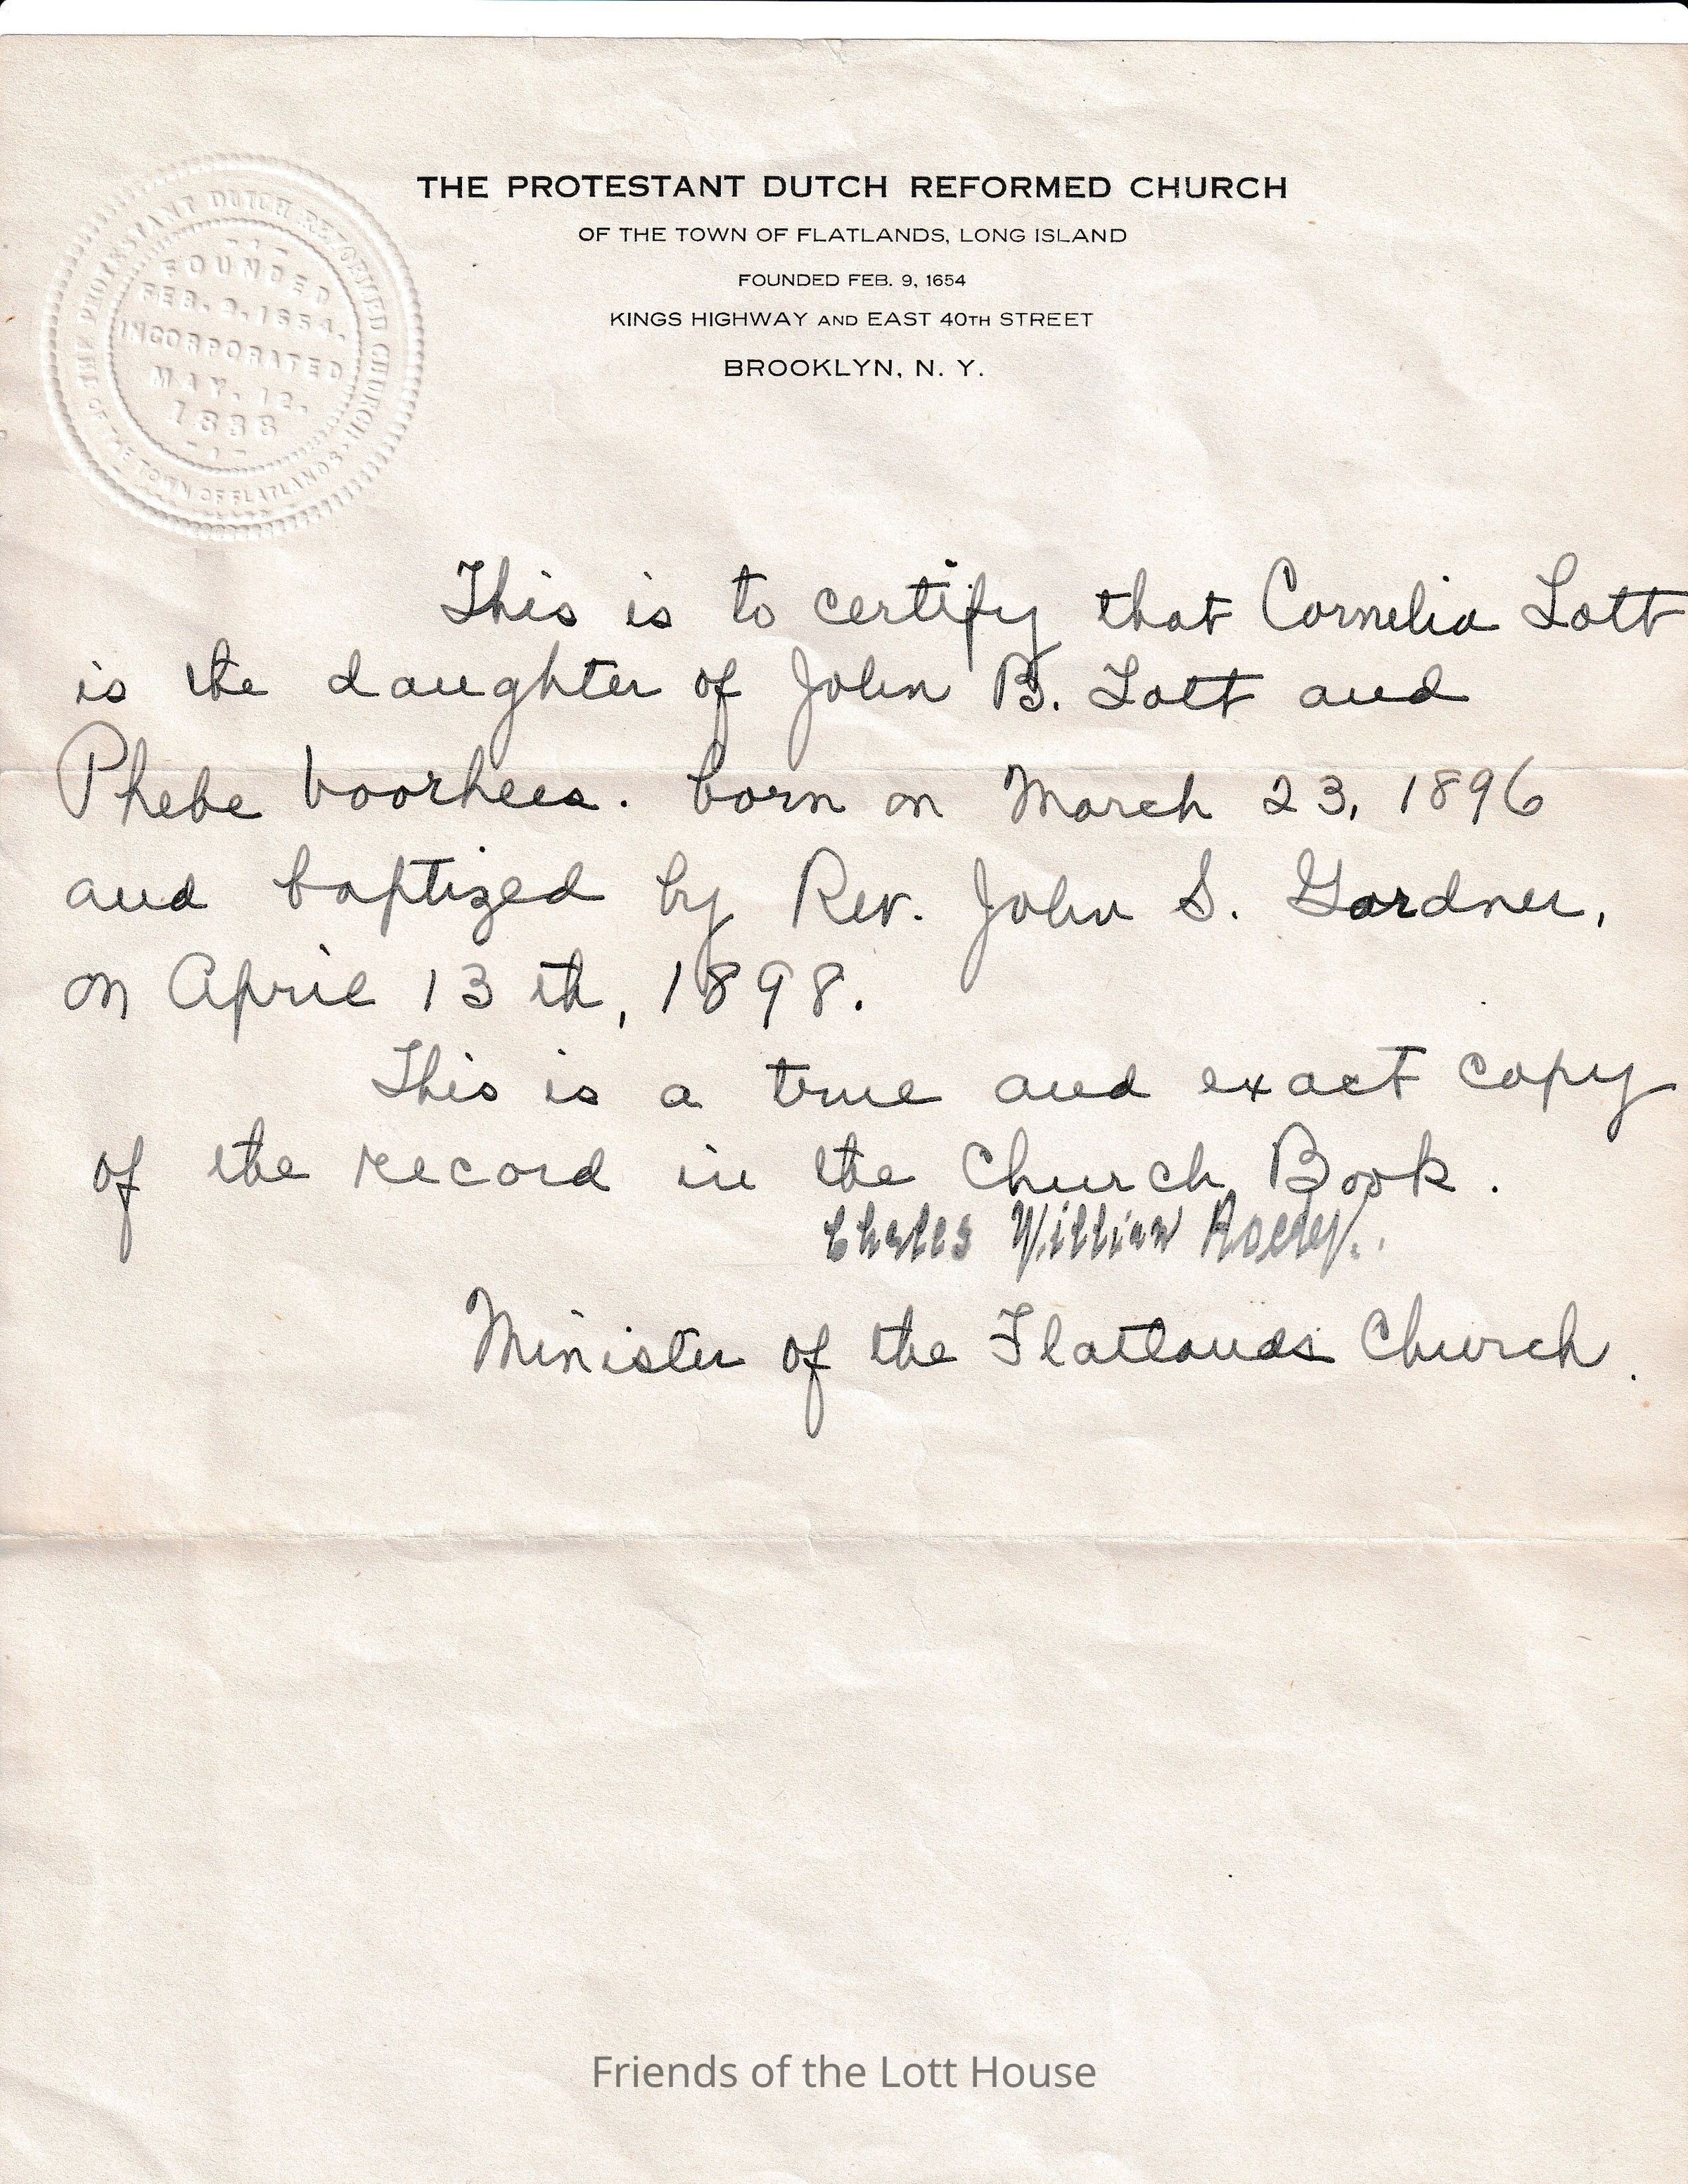 THE PROTESTANT DUTCH REFORMED CHURCH
OF THE TOWN OF FLATLANDS, LONG ISLAND
FOUNDED FEB. 9, 1654
KINGS HIGHWAY AND EAST 40TH STREET
BROOKLYN, N. Y.
THE PROTESTANT DUTCH REFORMED CHURCH
OF THE TOWN OF FLATLANDS
FOUNDED
FEB. 9, 1654.
INCORPORATED
MAY. 12.
1888
This is to certify that Cornelia Lott
is the daughter of John B. Lott and
Phebe Voorhees. born on March 23, 1896
and baptized by Rev. John S. Gardner,
on April 13th, 1898.
This is a true and exact copy
of the record in the Church Book.
Charles William
Minister of the Flatlands Church.
Friends of the Lott House